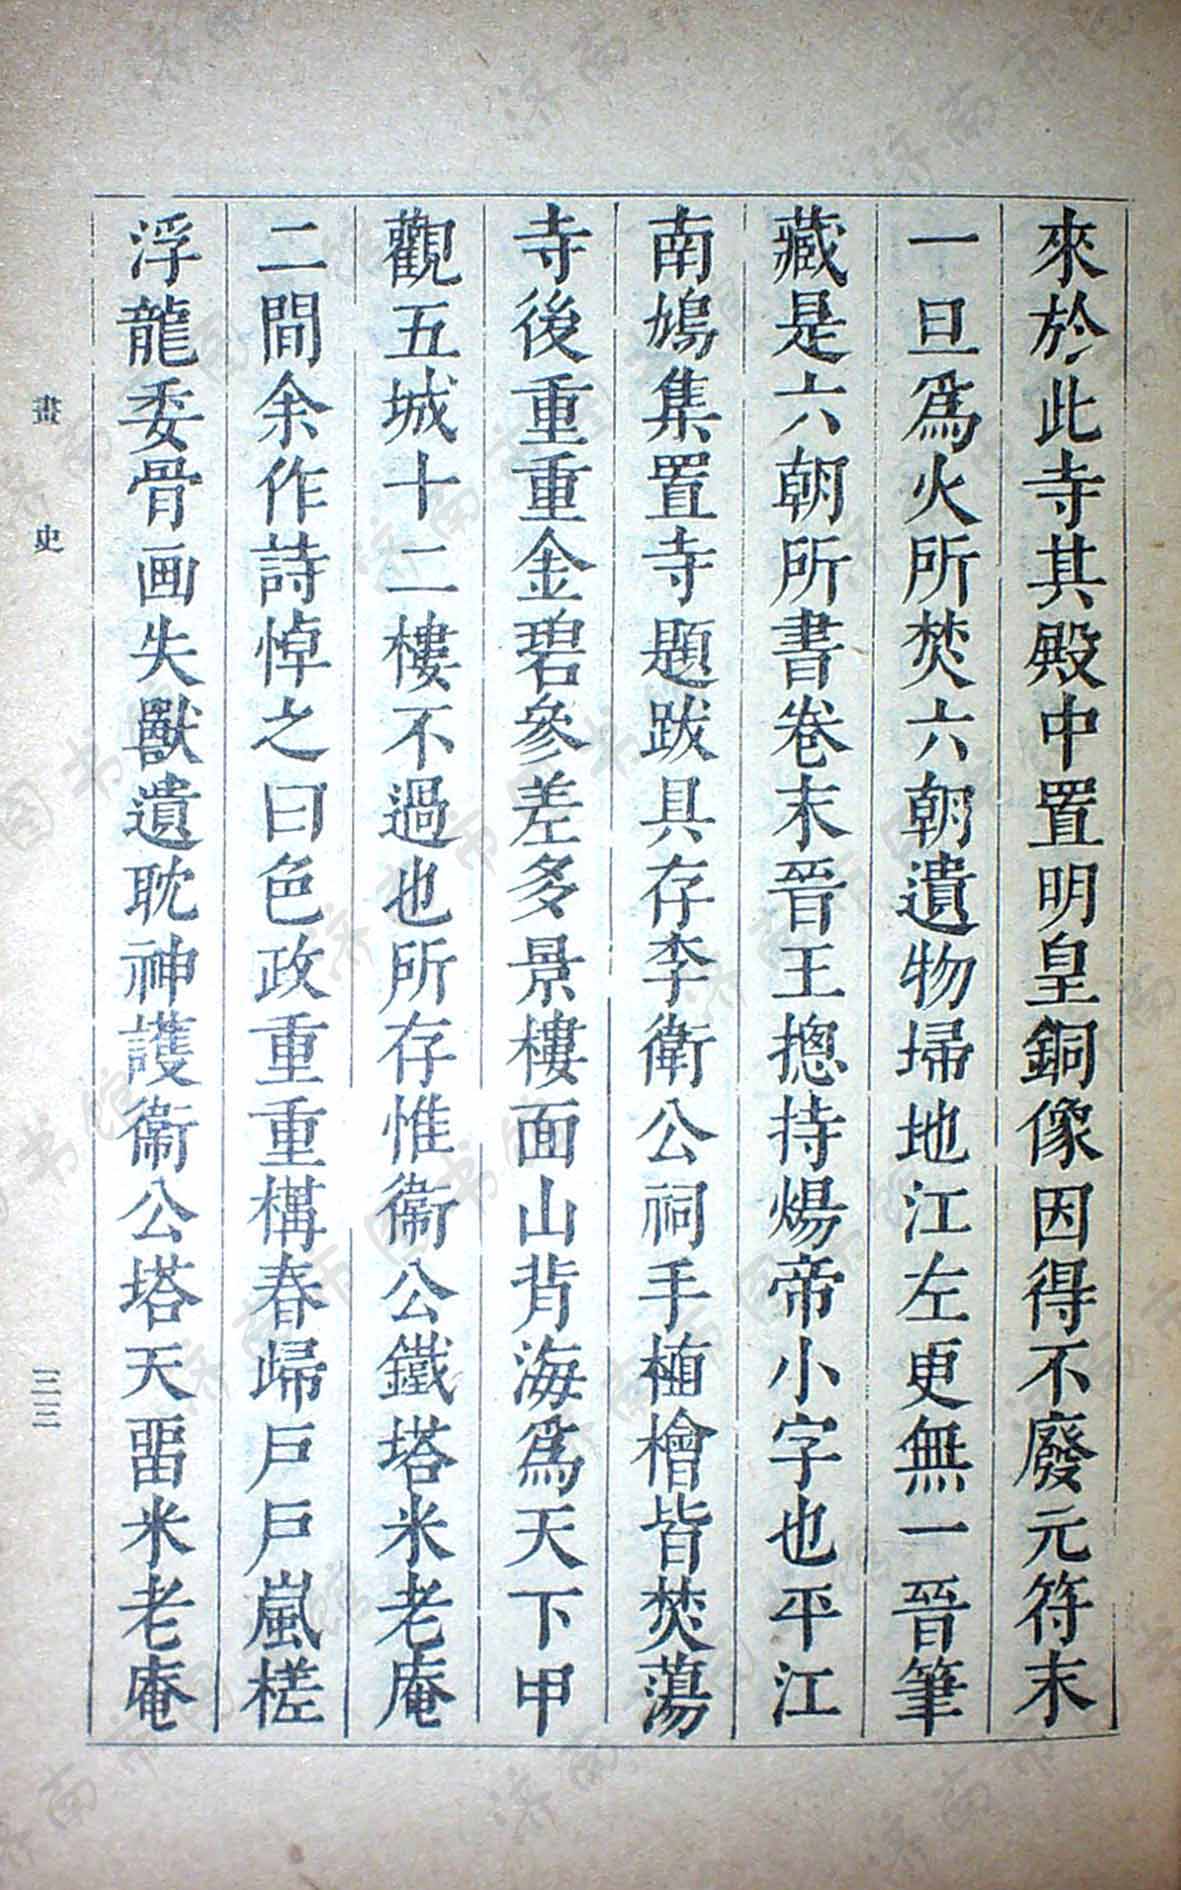 來於此寺其殿中置明皇銅像因得不廢元符末
一旦爲火所焚六朝遺物埽地江左更無一晉筆
藏是六朝所書卷末晉王摠持煬帝小字也平江
南鳩集置寺題跋具存李衛公祠手植檜皆焚蕩
寺後重重金碧參差多景樓面山背海爲天下甲
觀五城十二樓不過也所存惟衞公鐵塔米老庵
二間余作詩悼之曰色政重重構春歸戶戶嵐槎
浮龍委骨画失獸遺耽神護衞公塔天畱米老庵
畫史
三三
济南市图书馆